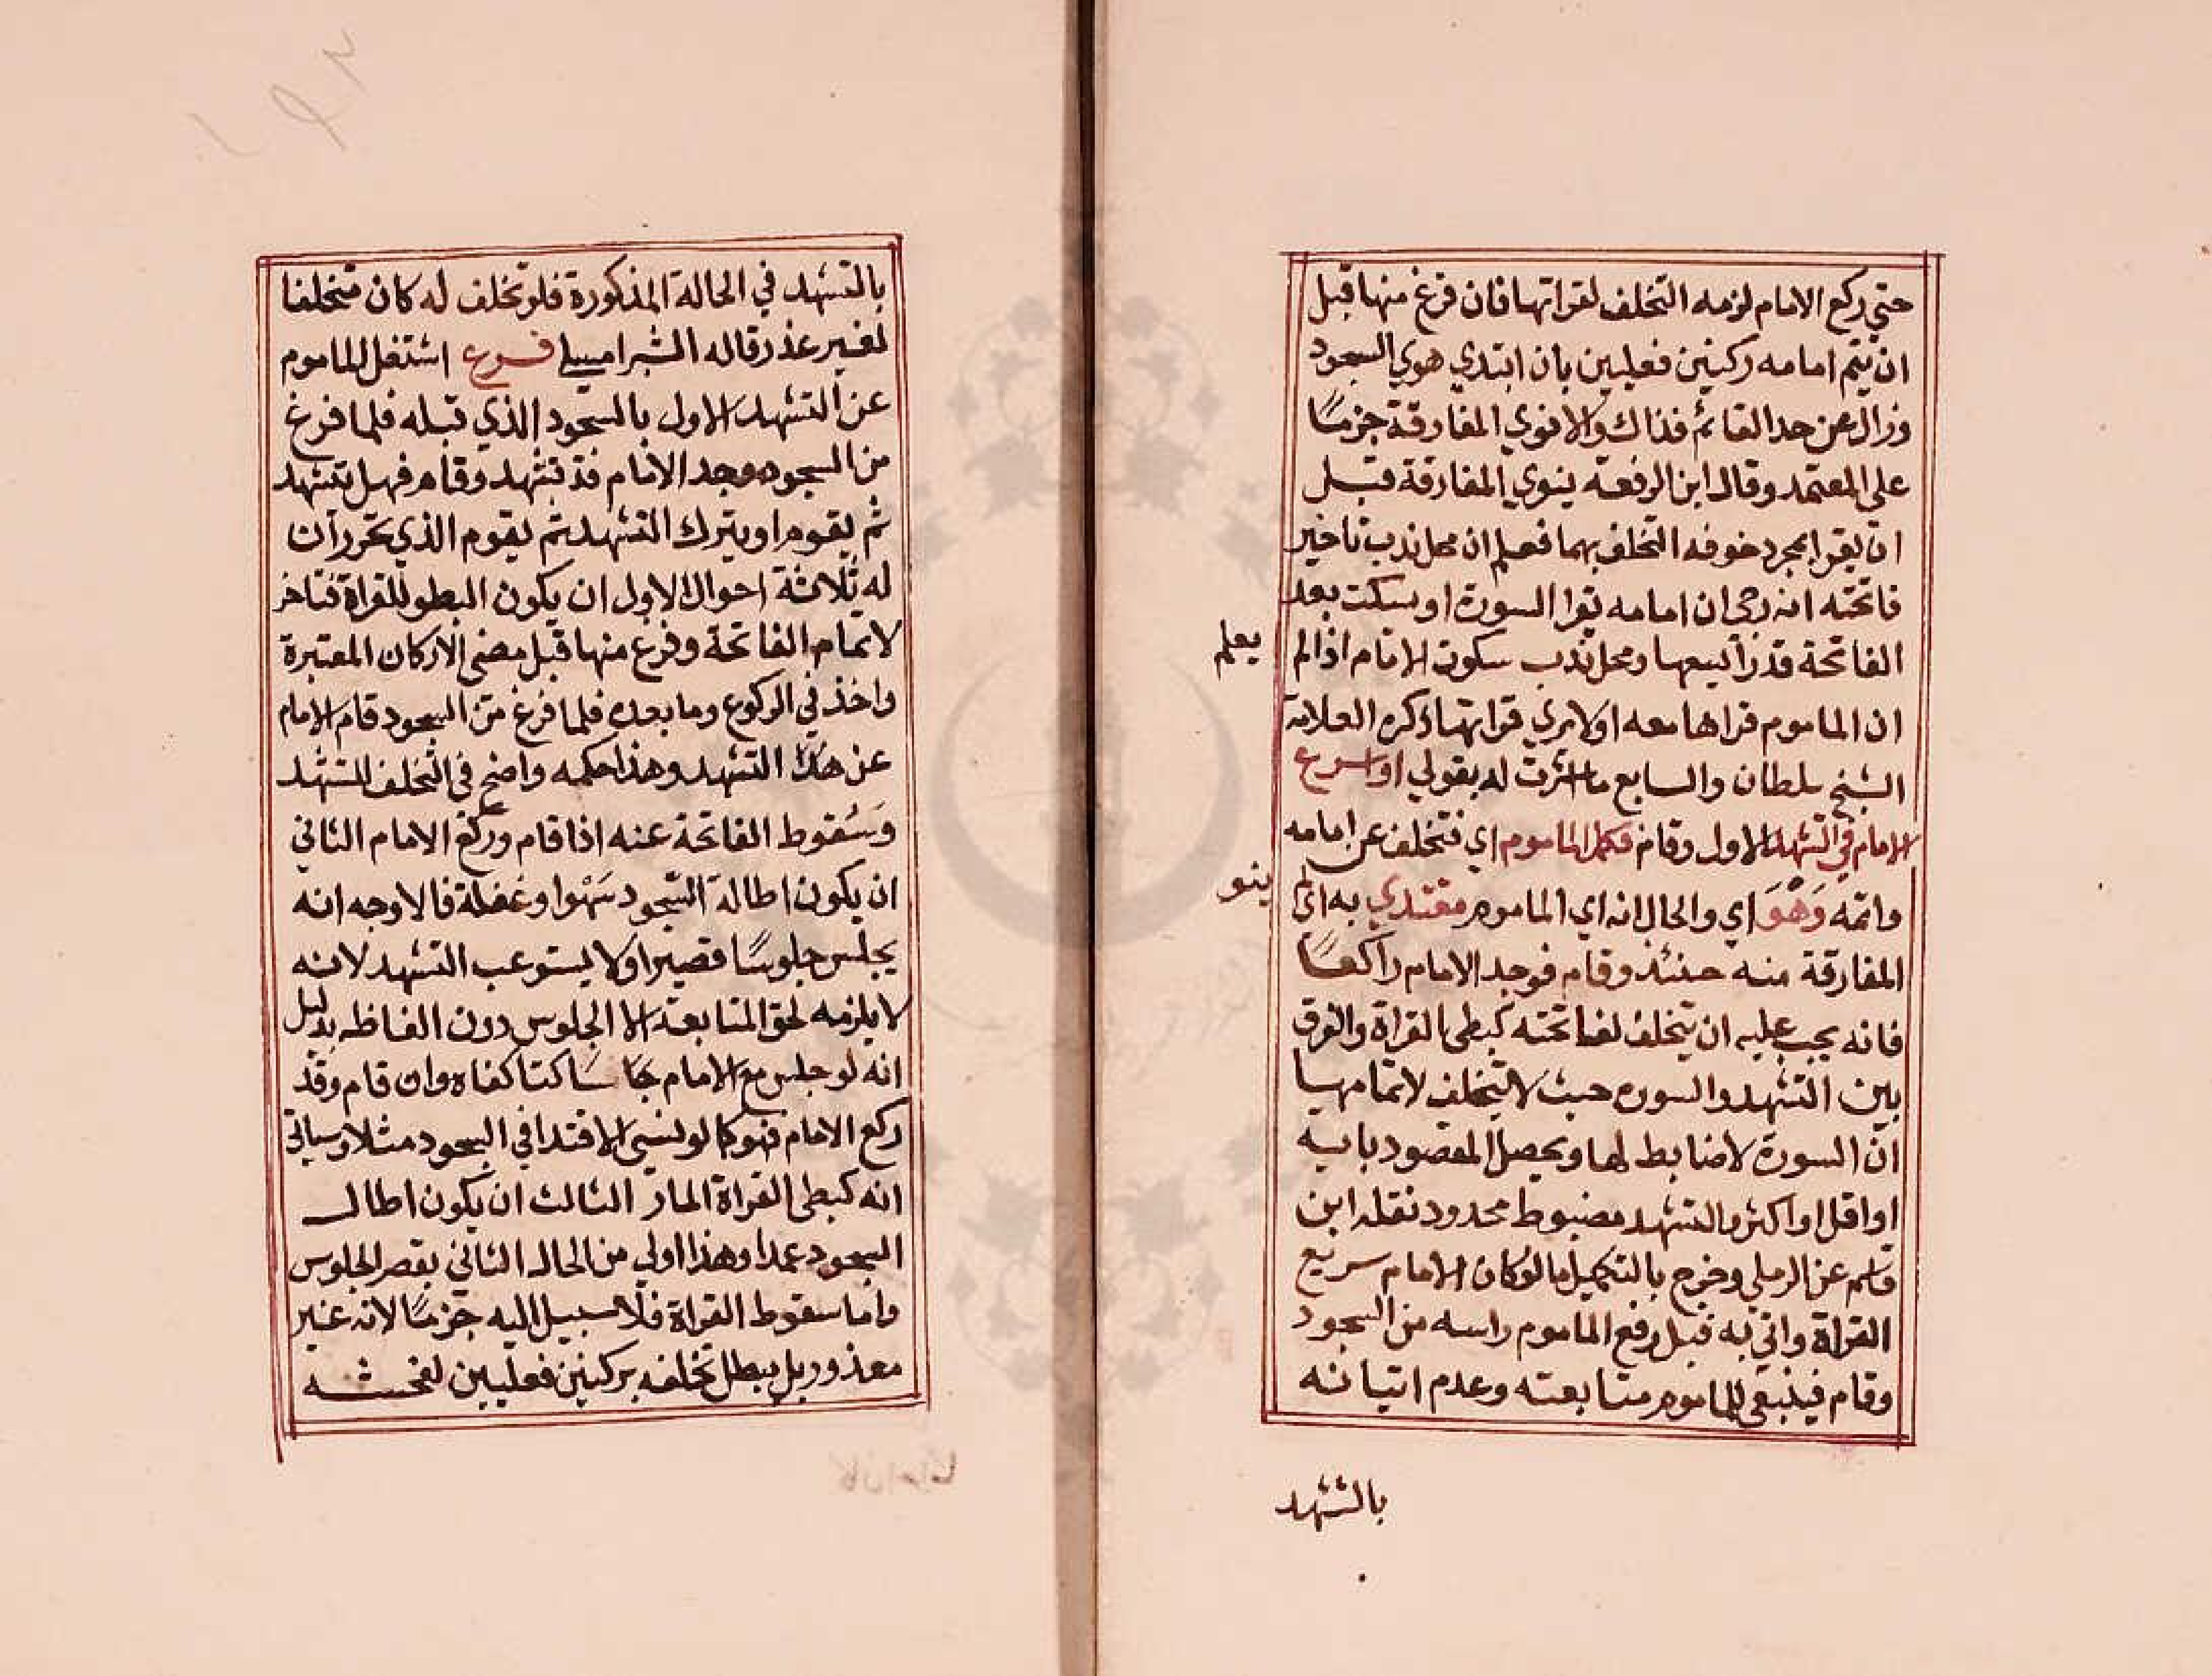 حتي ركع الامام لزمه التخلف لقراتها فان فرغ منها قبل
ان يتم امامه ركنين فعليين بان ابتدي هوي السجود
وزال عن حد القائم فذاك والا نوي المفارقة جزمًا
علي المعتمد وقال ابن الرفعه ينوي المفارقة قبل
ان يقرا بمجرد خوفه التخلف بهما فعلم ان محل ندب تاخير
فاتحته انه رجى ان امامه يقرا السورة او يسكت بعد
الفاتحة قدرًا يسعها ومحل ندب سكوت الامام اذا لم
يعلم
ان الماموم قراها معه او لا يري قراتها ذكره العلامة
الشيخ سلطان والسابع ما اشرت له بقولي او اسرع
الامام في التشهد الاول وقام فكمل الماموم اي فتخلف عن امامه
واتمه وَهُوَ اي والحال انه اي الماموم مقتدي به اي لم
ينو
المفارقة منه حينئذ وقام فوجد الامام راكعًا
فانه يجب عليه ان يتخلف لفاتحته كبطي القراة والفرق
بين التشهد والسوره حيث لا يتخلف لاتمامها
انّ السورة لا ضابط لها ويحصل المقصود باية
او اقل او اكثر والتشهد مضبوط محدود نقله ابن
قاسم عن الرملي وخرج بالتكميل ما لو كان الامام سريع
القراة واتي به قبل رفع الماموم راسه من السجود
وقام فينبغي للماموم متابعته وعدم اتيانه
بالتشهد
بالتشهد في الحالة المذكورة فلو تخلف له كان متخلفا
لغير عذر قاله الشبراميلي فرع اشتغل الماموم
عن التشهد الاول بالسجود الذي قبله فلما فرغ
من السجود وجد الامام قد تشهد وقام فهل يتشهد
ثم يقوم او يترك التشهد ثم يقوم الذي تحرر ان
له ثلاثة احوال الاول ان يكون البطو للقراة فتاخر
لاتمام الفاتحة وفرغ منها قبل مضى الاركان المعتبرة
واخذ في الركوع وما بعده فلما فرغ من السجود قام الامام
عن هذا التشهد وهذا حكمه واضح في التخلف للتشهد
وَسُقوط الفاتحة عنه اذا قام وركع الامام الثاني
ان يكون اطالة السجود سَهْوا وغفلة فالاوجه انه
يجلس جلوسًا قصيرا ولا يستوعب التشهد لانه
لا يلزمه لحق المتابعة الا الجلوس دون الفاظه بدليل
انه لو جلس مع الامام سَاكتا كفاه وان قام وقد
ركع الامام فهو كما لو نسي الاقتدا في السجود مثلا وسياتي
انه كبطي القراة المار الثالث ان يكون اطال
السجود عمدا وهذا اولي من الحالة الثاني بقصر الجلوس
واما سقوط القراة فلا سبيل اليه جزمًا لانه غير
معذور بل يبطل تخلفه بركنين فعليين لفحشه